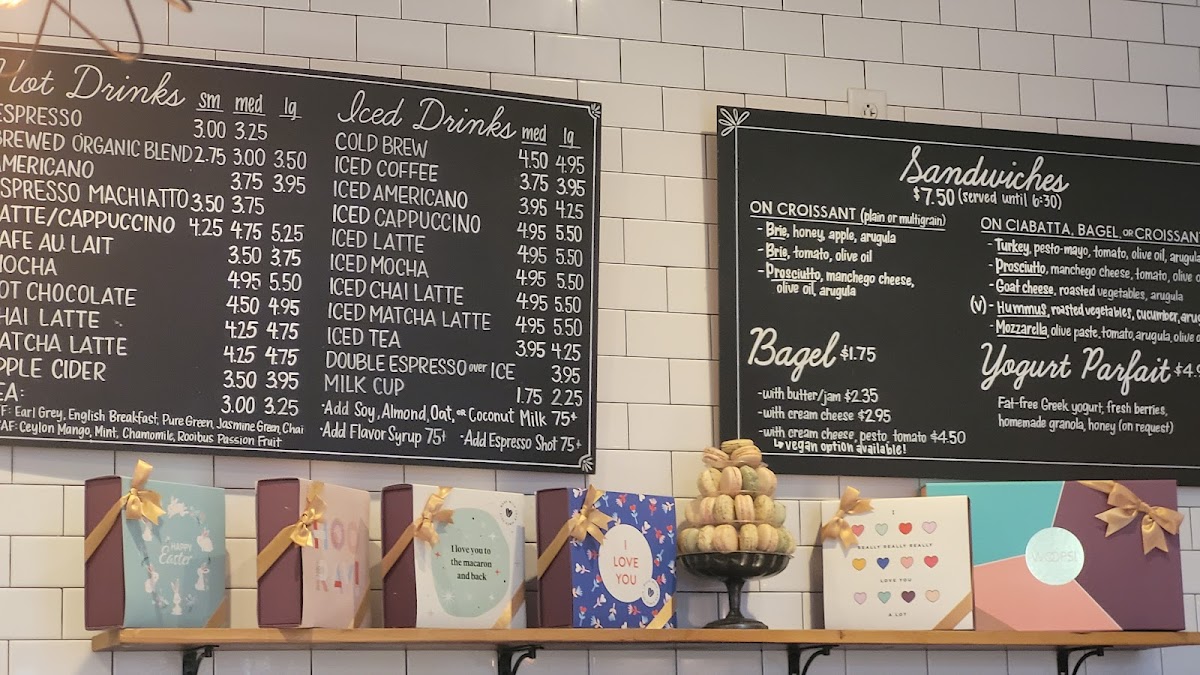 Hot Drinks sm med lg
ESPRESSO 3.00 3.25
BREWED ORGANIC BLEND 2.75 3.00 3.50
AMERICANO 3.75 3.95
ESPRESSO MACHIATTO 3.50 3.75
LATTE/CAPPUCCINO 4.25 4.75 5.25
CAFE AU LAIT 3.50 3.75
MOCHA 4.95 5.50
HOT CHOCOLATE 4.50 4.95
CHAI LATTE 4.25 4.75
MATCHA LATTE 4.25 4.75
APPLE CIDER 3.50 3.95
TEA: 3.00 3.25
F: Earl Grey, English Breakfast, Pure Green, Jasmine Green, Chai
AF: Ceylon Mango, Mint, Chamomile, Rooibus Passion Fruit
Iced Drinks med lg
COLD BREW 4.50 4.95
ICED COFFEE 3.75 3.95
ICED AMERICANO 3.95 4.25
ICED CAPPUCCINO 4.95 5.50
ICED LATTE 4.95 5.50
ICED MOCHA 4.95 5.50
ICED CHAI LATTE 4.95 5.50
ICED MATCHA LATTE 4.95 5.50
ICED TEA 3.95 4.25
DOUBLE ESPRESSO over ICE 3.95
MILK CUP 1.75 2.25
·Add Soy, Almond, Oat, or Coconut Milk 75¢
·Add Flavor Syrup 75¢ ·Add Espresso Shot 75¢
Sandwiches
$7.50 (served until 6:30)
ON CROISSANT (plain or multigrain)
- Brie, honey, apple, arugula
- Brie, tomato, olive oil
- Prosciutto, manchego cheese,
olive oil, arugula
Bagel $1.75
-with butter/jam $2.35
-with cream cheese $2.95
-with cream cheese, pesto, tomato $4.50
↳vegan option available!
ON CIABATTA, BAGEL, OR CROISSANT
- Turkey, pesto-mayo, tomato, olive oil, arugula
- Prosciutto, manchego cheese, tomato, olive o
- Goat cheese, roasted vegetables, arugula
(V) - Hummus, roasted vegetables, cucumber, arug
- Mozzarella, olive paste, tomato, arugula, olive o
Yogurt Parfait $4.9
Fat-free Greek yogurt, fresh berries,
homemade granola, honey (on request)
HAPPY
Easter
HOO
RAY!
I love you to
the macaron
and back
I
LOVE
YOU
I
REALLY REALLY REALLY
LOVE YOU
A LOT
WOOPS!